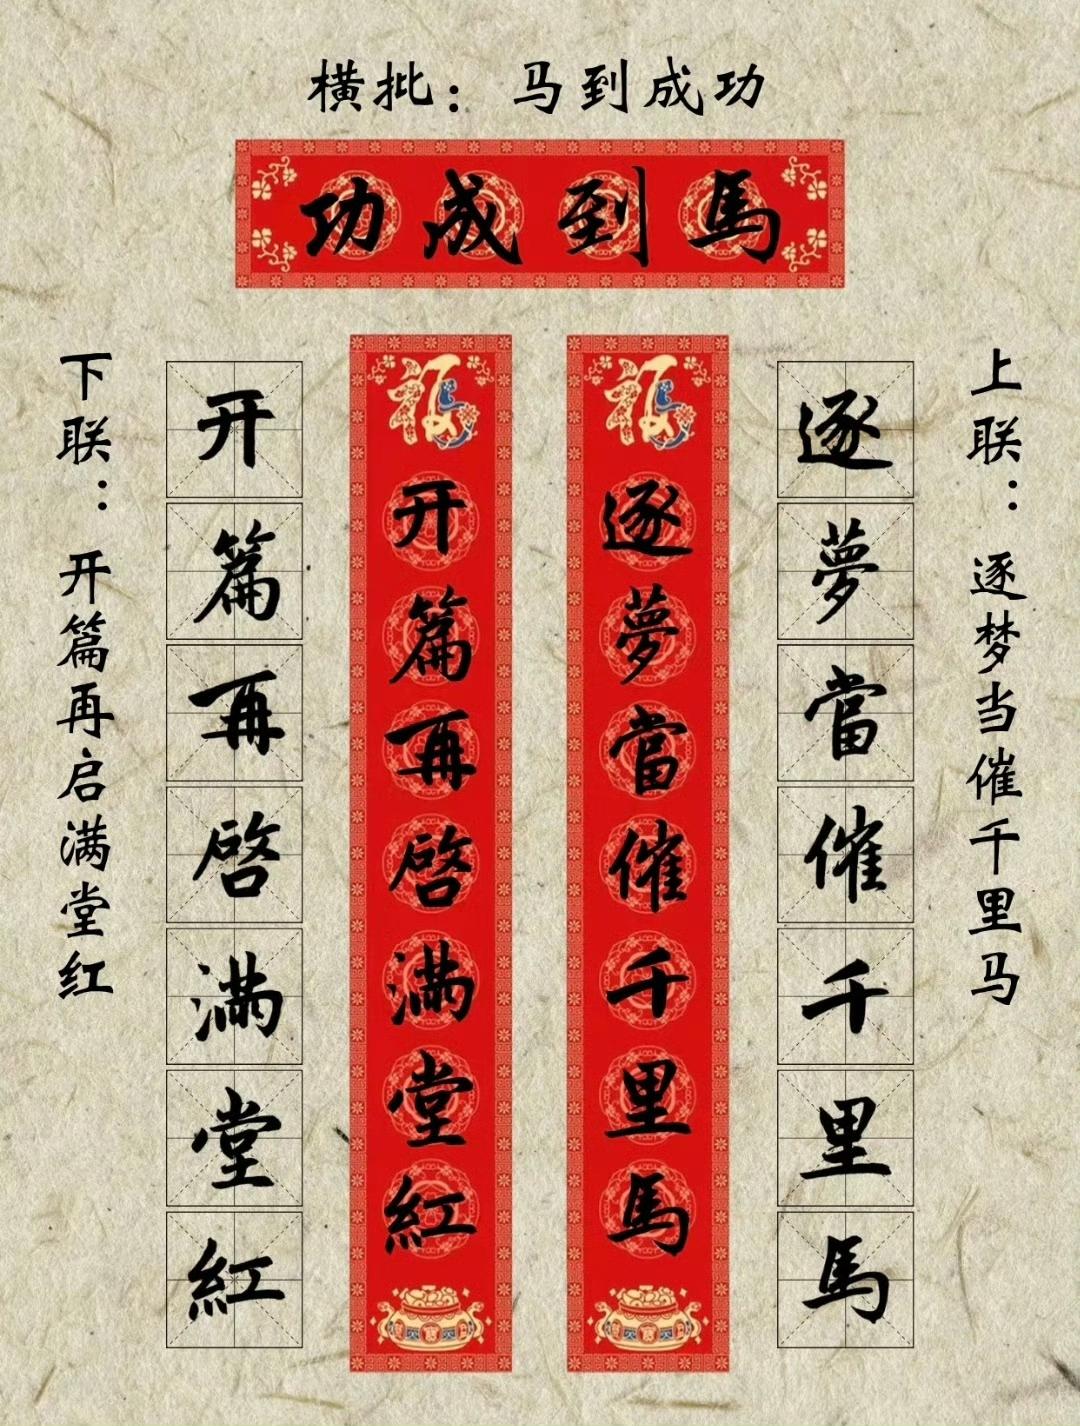 横批：马到成功
馬到成功
上联：逐梦当催千里马
逐夢當催千里馬
逐夢當催千里馬
福
開篇再啓满堂紅
福
开篇再啓满堂紅
下联：开篇再启满堂红